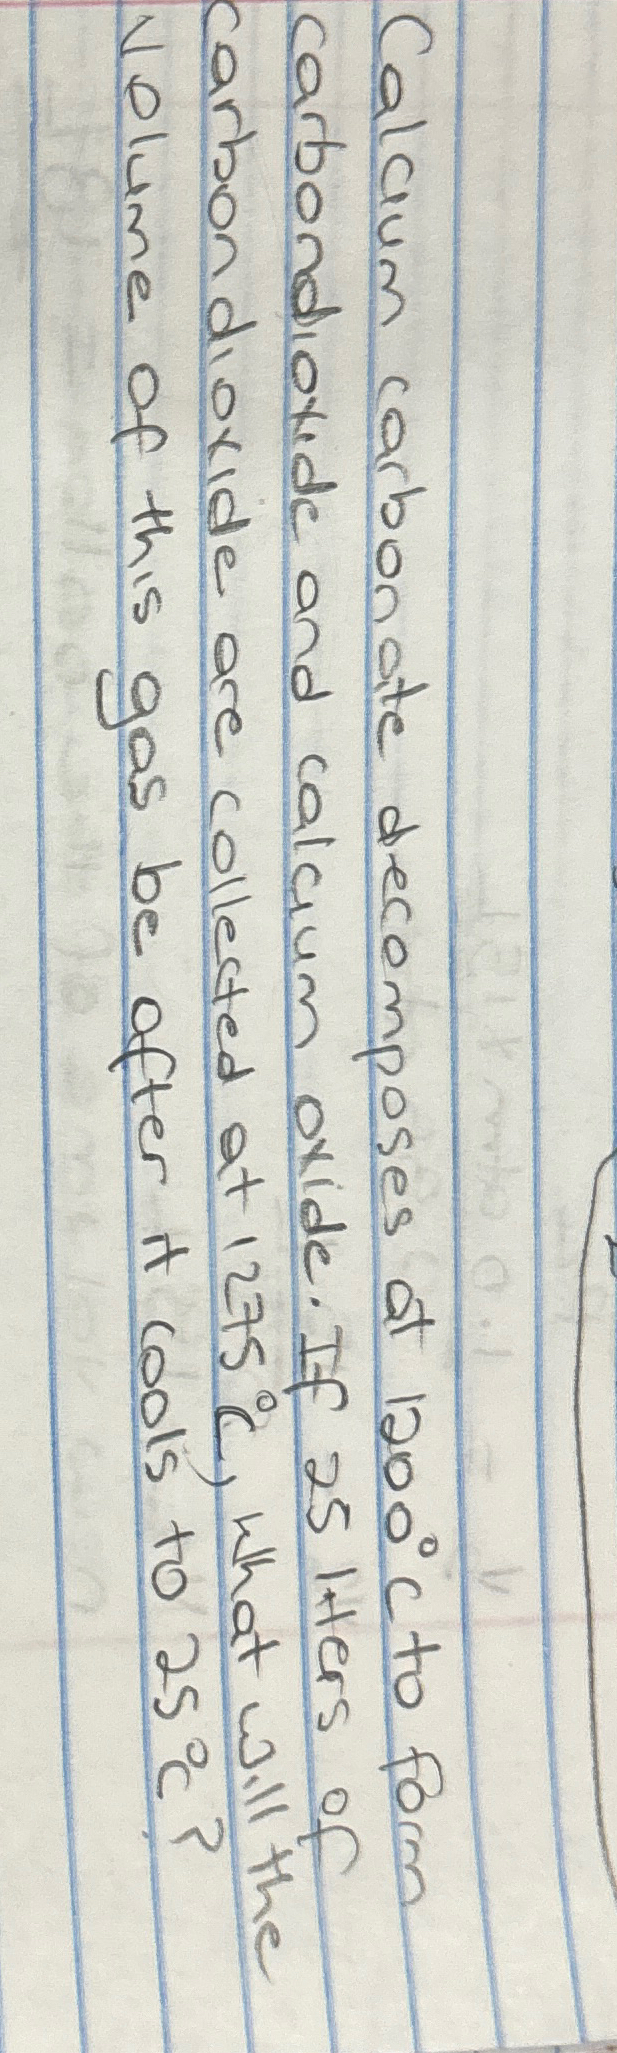 Calcium carbonate decomposes at 1200°C to form
carbondioxide and calcium oxide. If 25 liters of
carbon dioxide are collected at 1275°C, what will the
volume of this gas be after it cools to 25°C?